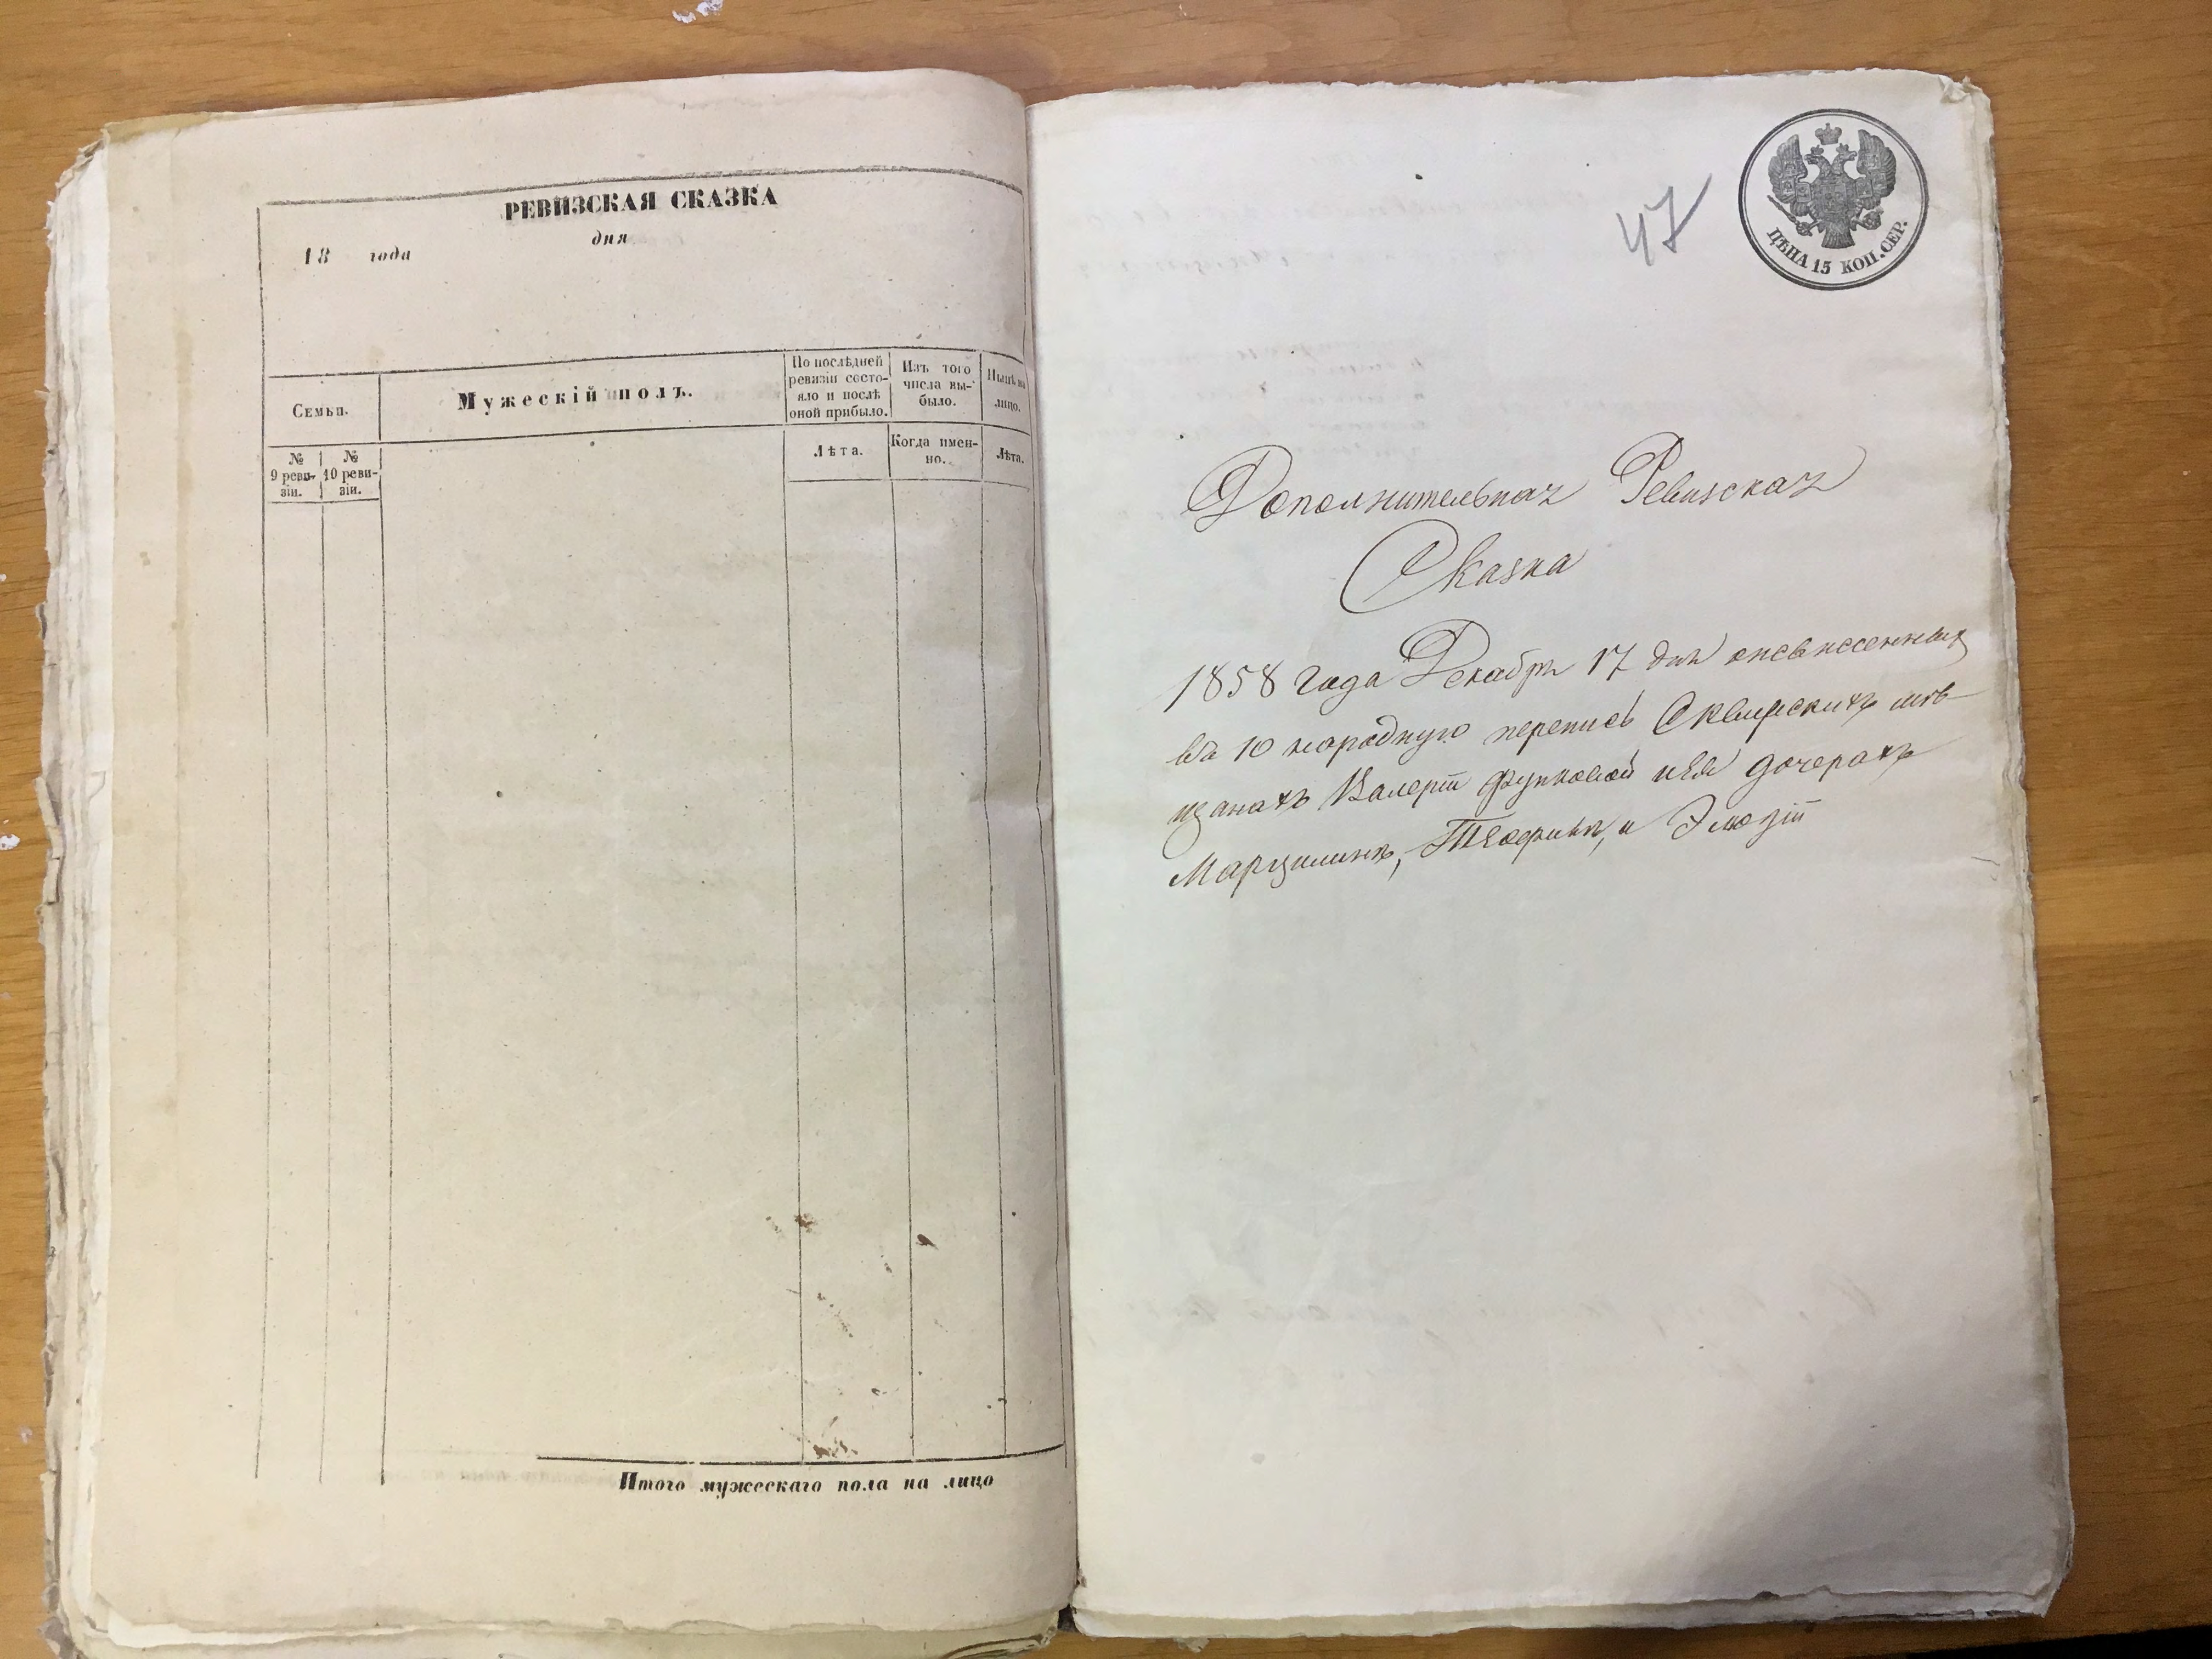 РЕВИЗСКАЯ СКАЗКА
дня
18 года
Семьи.
Мужескій полъ.
По послѣдней
ревизіи состо-
яло и послѣ
оной прибыло.
Изъ того
числа вы-
было.
Нынѣ на
лицо.
№
9 реви-
зіи.
№
10 реви-
зіи.
Лѣта.
Когда имен-
но.
Лѣта.
Итого мужескаго пола на лицо
47
ЦѢНА 15 КОП. СЕР.
Дополнительная Ревизская
Сказка
1858 года Декабря 17 дня о невнесенныхъ
въ 10 народную перепись Сквирскихъ мѣ-
щанахъ Валеріи Функовой и ея дочерахъ
Марцилинѣ, Теофилѣ, и Элюзіи